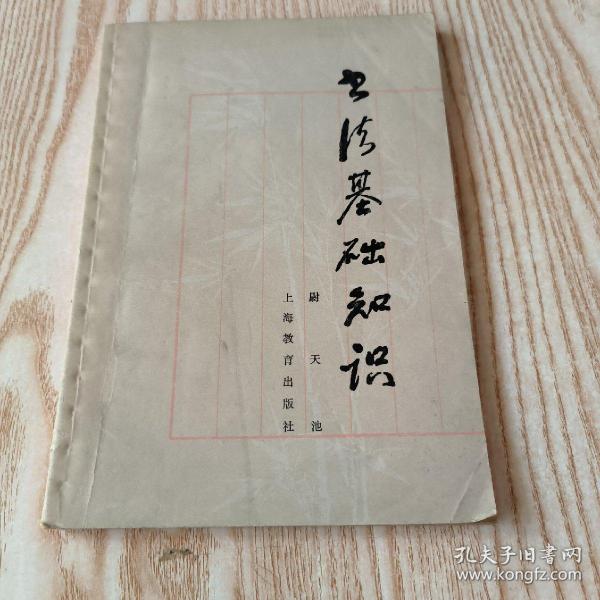 书法基础知识
尉天池
上海教育出版社
孔夫子旧书网
www.kongfz.com